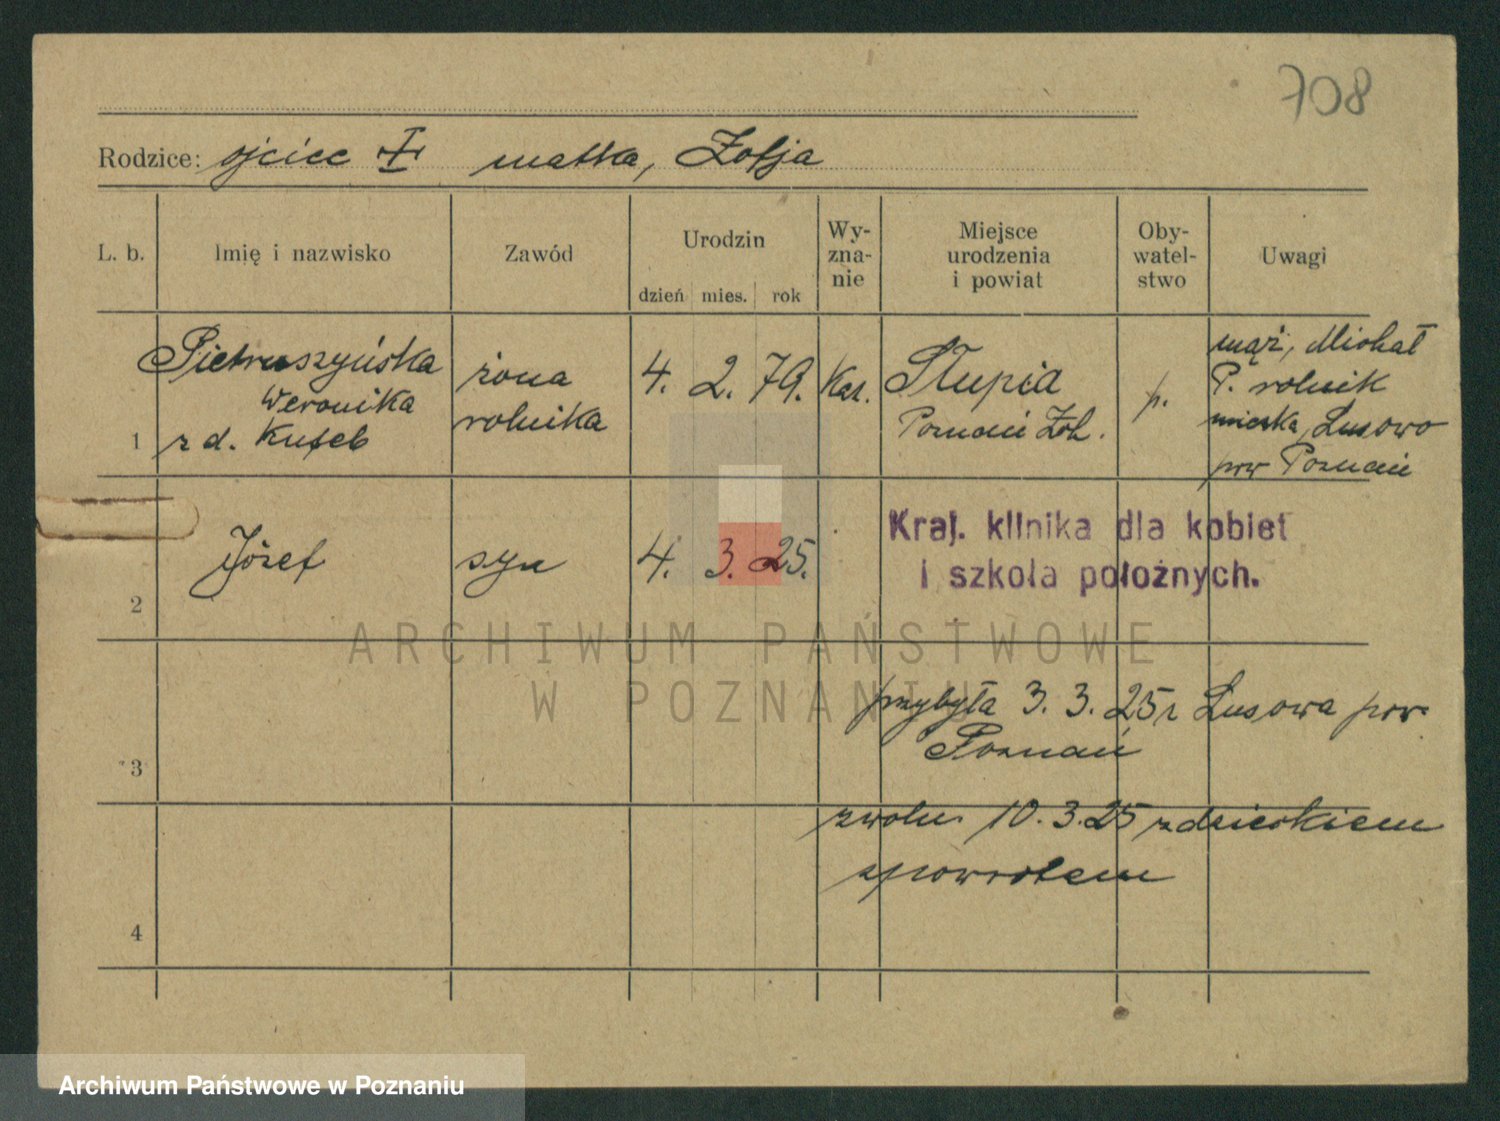 708
Rodzice: ojciec † matka, Zofja
L. b.
Imię i nazwisko
Zawód
Urodzin
dzień mies. rok
Wy-
zna-
nie
Miejsce
urodzenia
i powiat
Oby-
watel-
stwo
Uwagi
1
Pietruszyńska
Weronika
z d.
żona
rolnika
4. 2. 79.
Kat.
Słupia
Poznań Zch.
p.
mąż, Michał
P. rolnik
mieszka, Lusowo
pow Poznań
2
Józef
syn
4. 3. 25.
Kraj. klinika dla kobiet
i szkoła położnych.
3
przybyła 3. 3. 25 z Lusowa pow.
Poznań
4
zwoln. 10. 3. 25 z dzieckiem
zpowrotem
ARCHIWUM PAŃSTWOWE
W POZNANIU
Archiwum Państwowe w Poznaniu